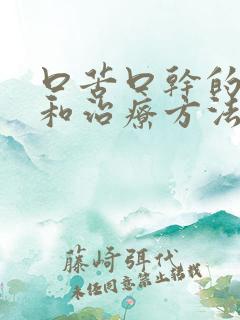 口苦口幹的
和治療方法
藤崎弭代
未经同意禁止转载